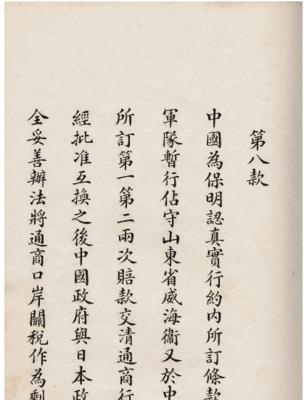 第八款
中國為保明認真實行約內所訂條款
軍隊暫行佔守山東省威海衞又於中
所訂第一第二兩次賠款交清通商行
經批准互換之後中國政府與日本政
全妥善辦法將通商口岸關稅作為剩